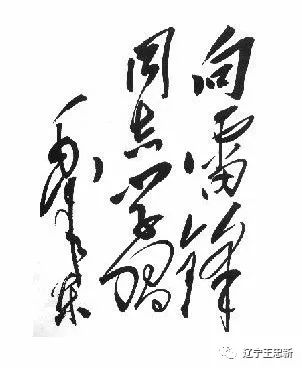 向雷锋
同志学习
毛泽东
辽宁王忠新